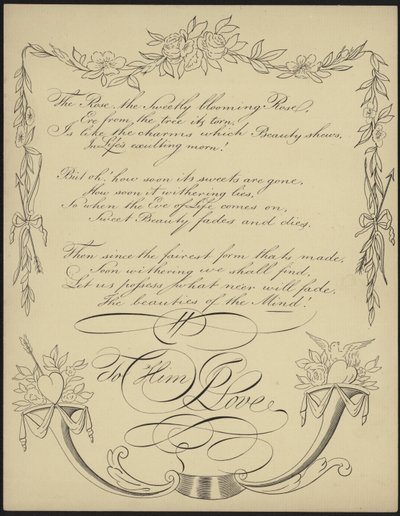 The Rose, the Sweetly blooming Rose,
Ere from the tree its torn,
Is like the charms which Beauty shows,
In Life's exulting morn!
But oh! how soon its sweets are gone,
How soon it withering lies,
So when the Eve of Life comes on,
Sweet Beauty fades and dies.
Then since the fairest form thats made,
Soon withering we shall find,
Let us possess what ne'er will fade,
The beauties of the Mind!
To Him I Love